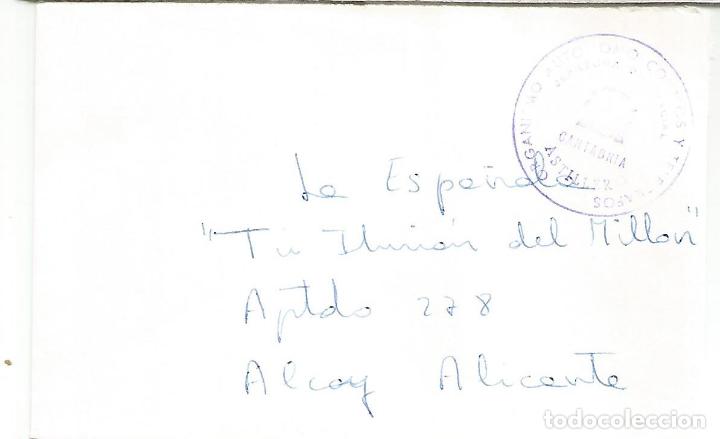 ORGANISMO AUTONOMO CORREOS Y TELEGRAFOS
CANTABRIA
ASTILLERO
La Española
"Tu Ilusión del Millon"
Aptdo 278
Alcoy Alicante
todocoleccion.net